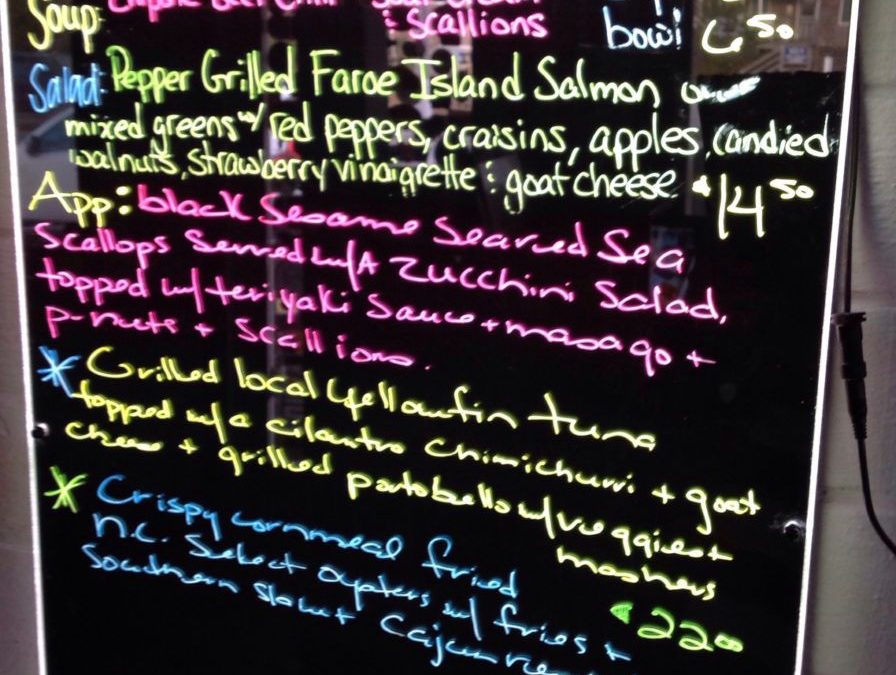 Soup: Beef Chili
& Scallions bowl 6 50
Salad: Pepper Grilled Faroe Island Salmon over
mixed greens w/ red peppers, craisins, apples, candied
walnuts, strawberry vinaigrette & goat cheese $14 50
App: black Sesame Seared Sea
Scallops Served w/A Zucchini Salad,
topped w/ teriyaki Sauce + masago +
p-nuts + Scallions.
* Grilled local yellowfin tuna
topped w/a cilantro Chimichurri + goat
cheese + grilled portobello w/ veggies +
mashers
* Crispy cornmeal fried $22 00
N.C. Select oysters w/ fries +
Southern Slaw + Cajun